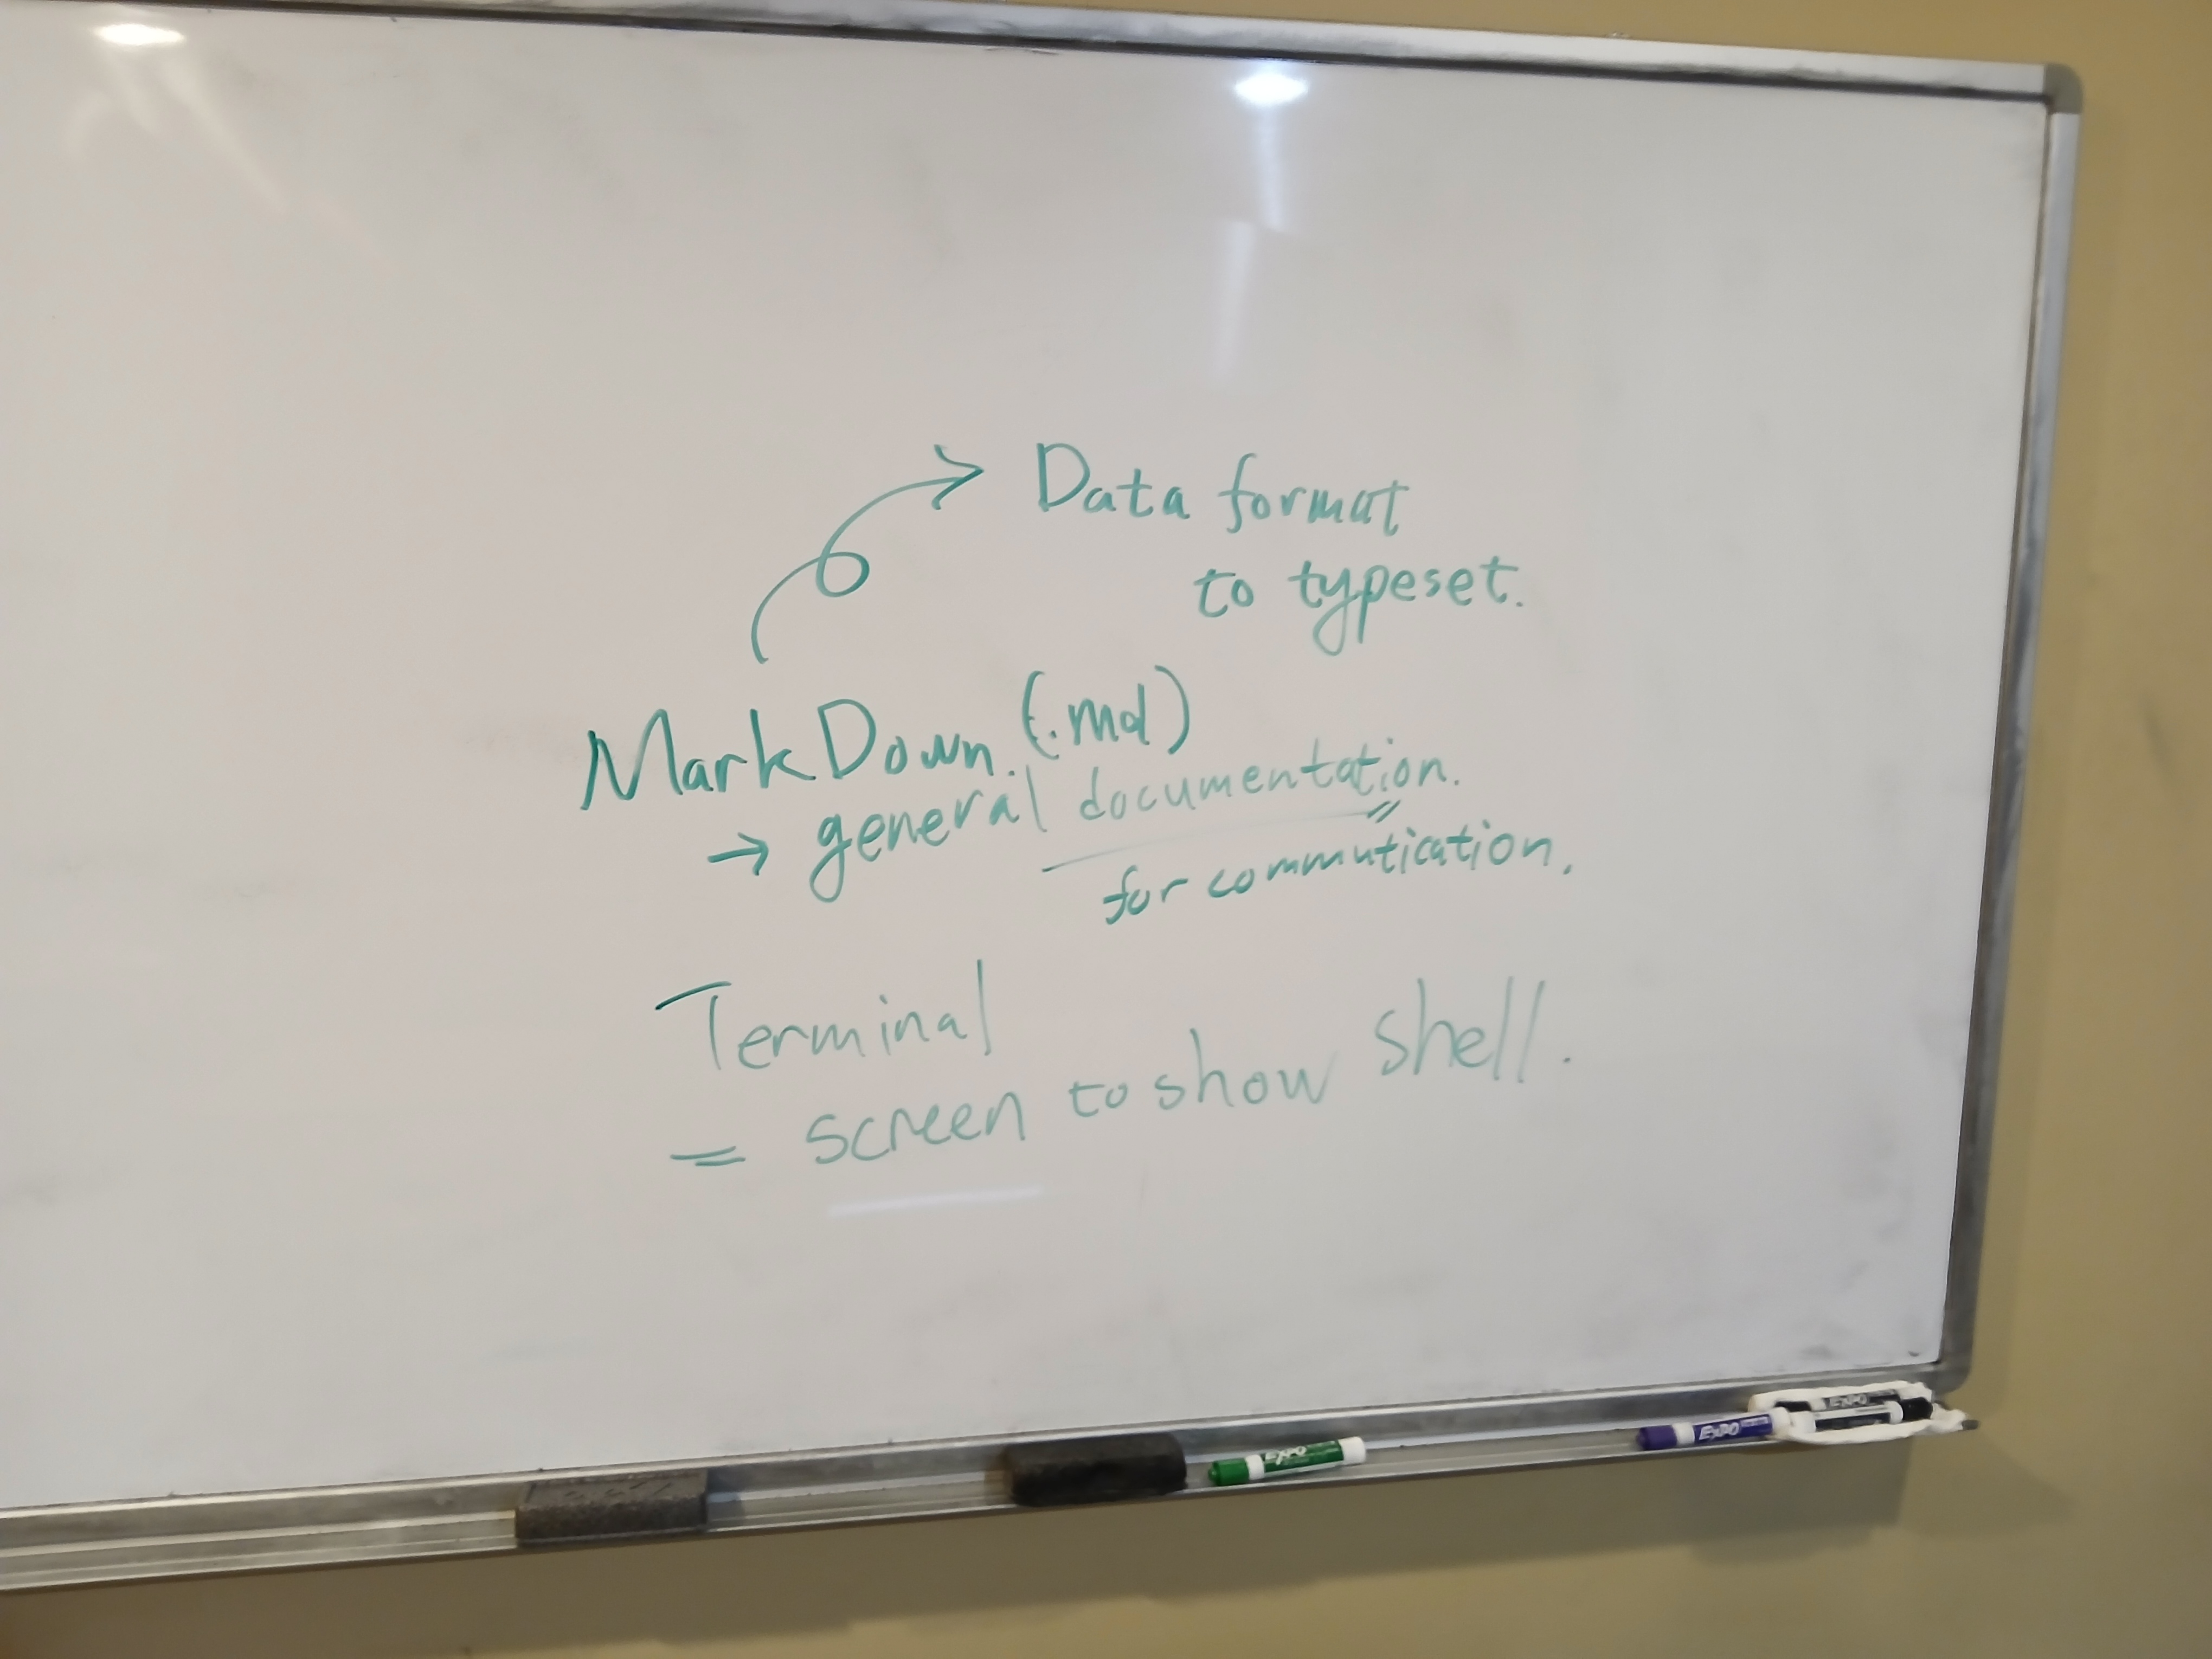 Data format
to typeset.
MarkDown. (.md)
→ general documentation.
for commutication.
Terminal
= screen to show shell.
EXPO
EXPO
EXPO